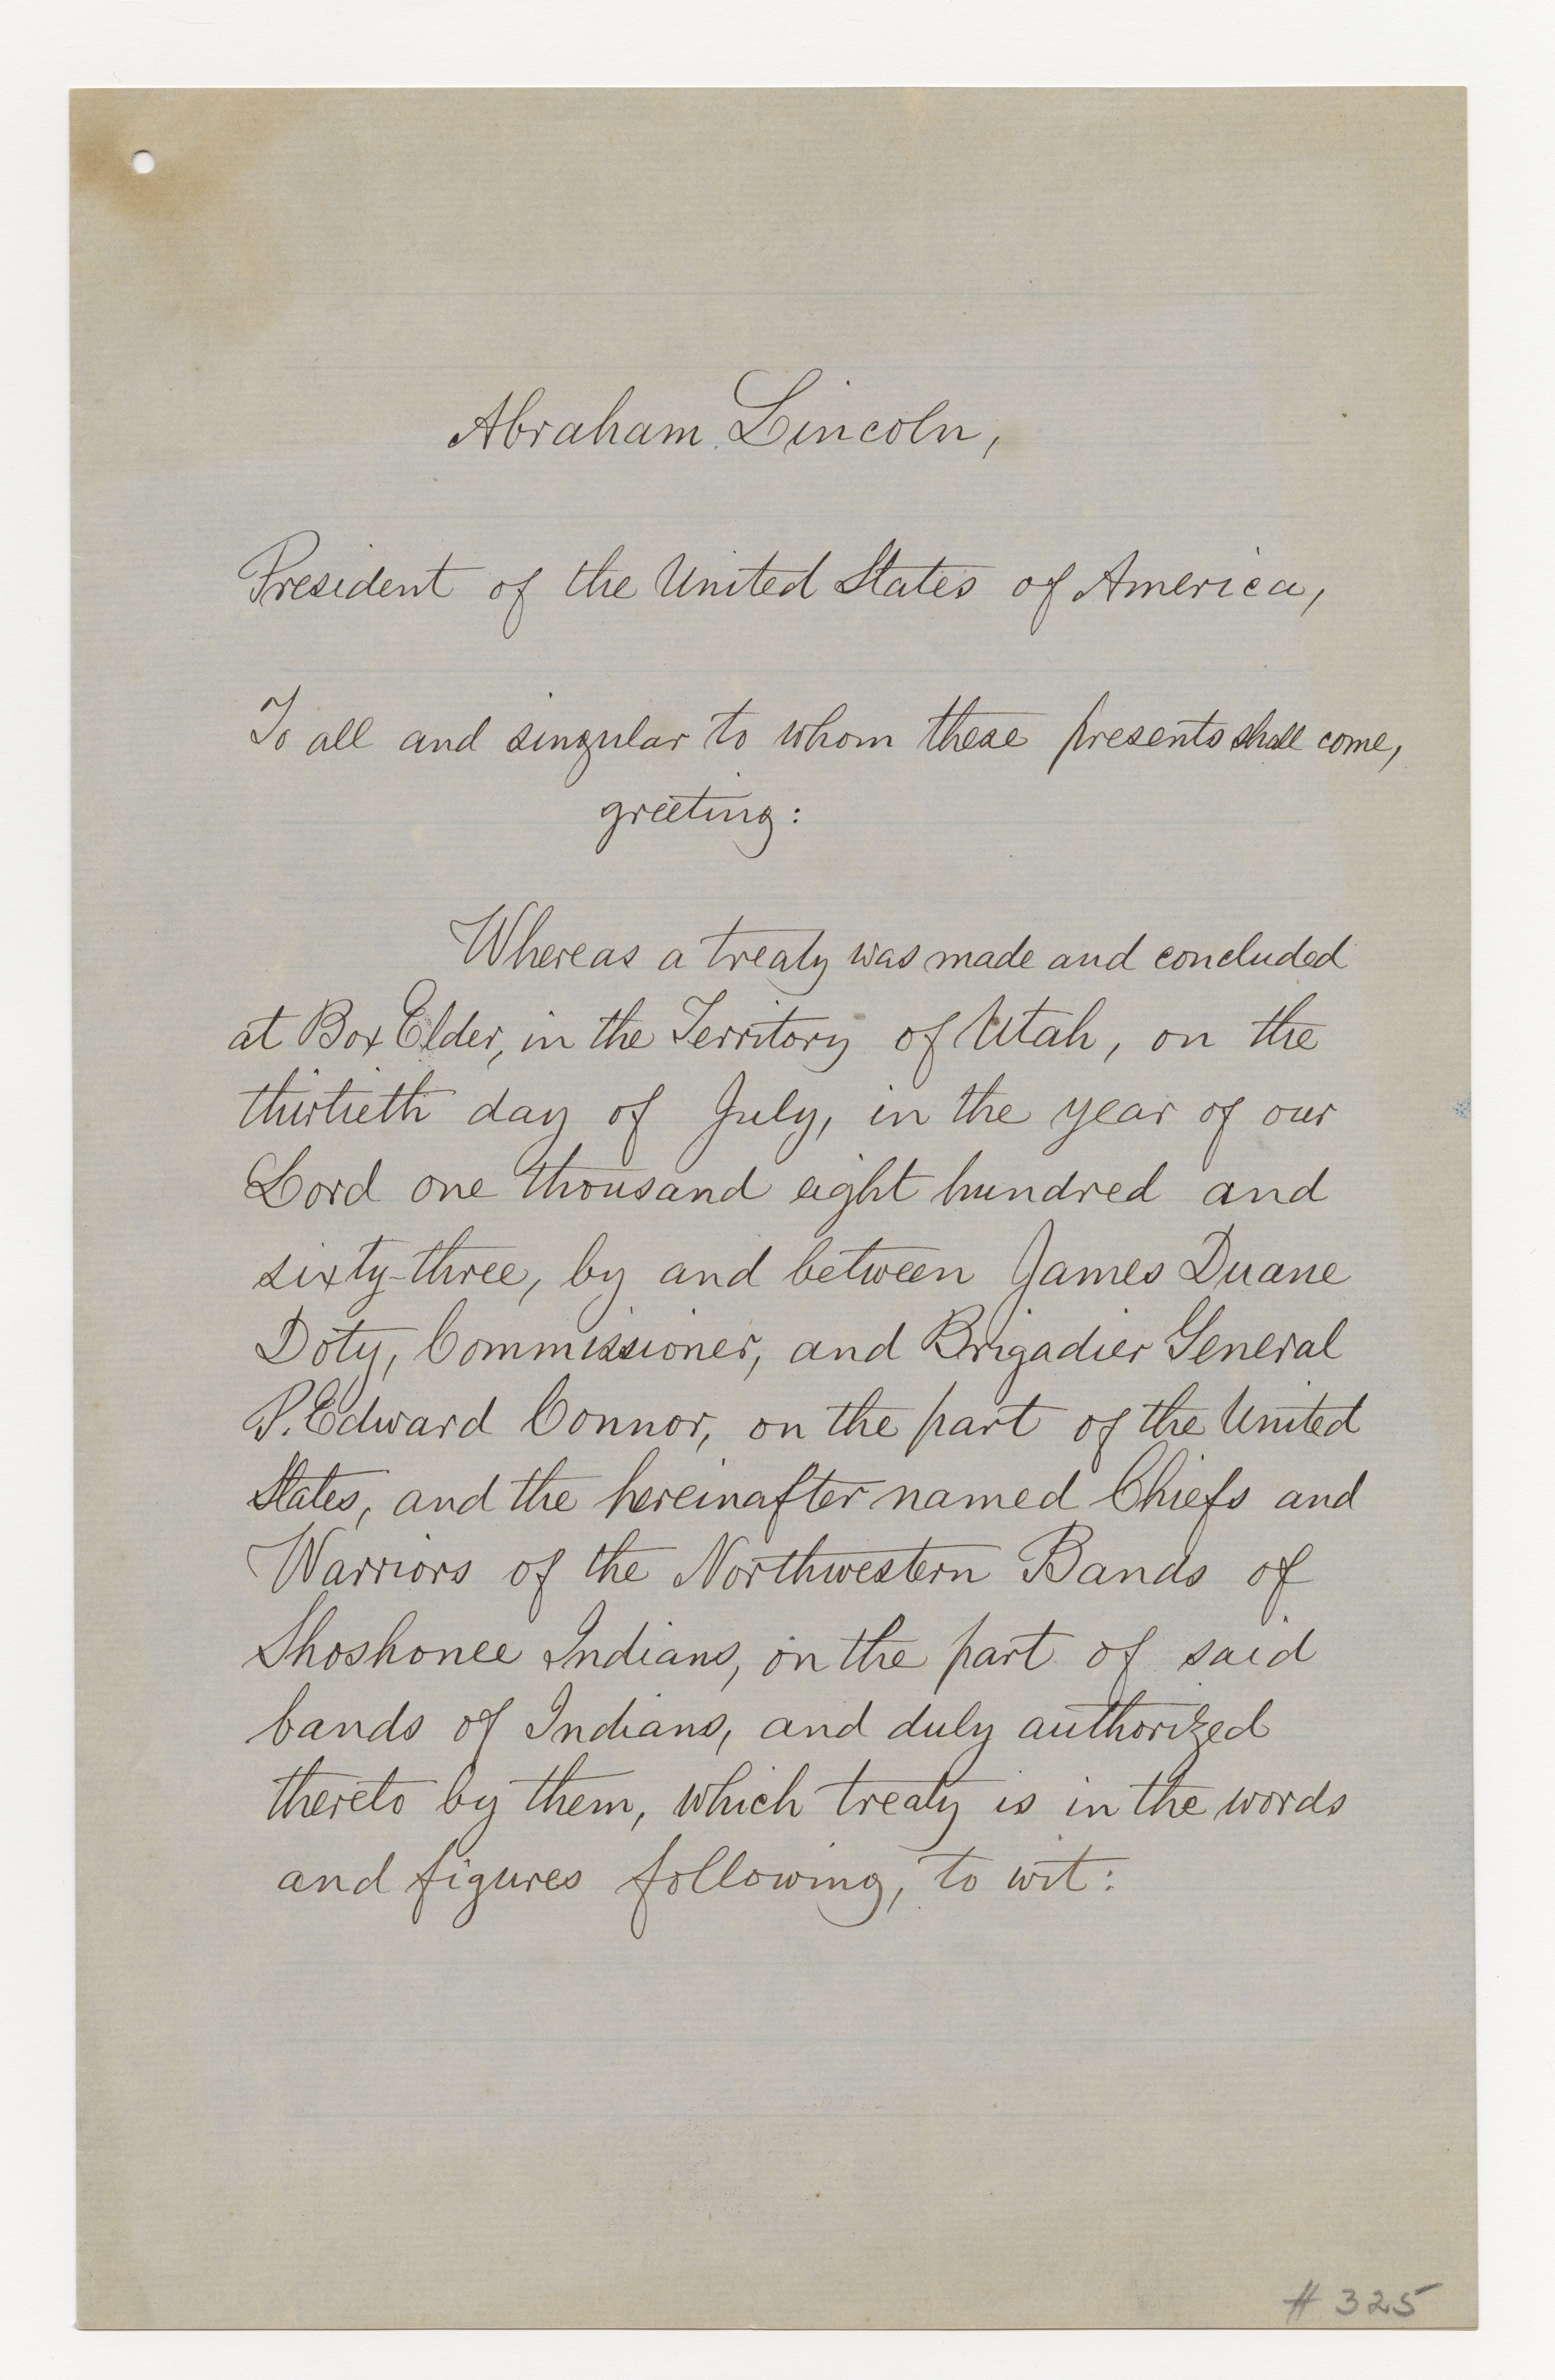 Abraham Lincoln,
President of the United States of America,
To all and singular to whom these presents shall come,
greeting:
Whereas a treaty was made and concluded
at Box Elder, in the Territory of Utah, on the
thirtieth day of July, in the year of our
Lord one thousand eight hundred and
sixty-three, by and between James Duane
Doty, Commissioner, and Brigadier General
P. Edward Connor, on the part of the United
States, and the hereinafter named Chiefs and
Warriors of the Northwestern Bands of
Shoshonee Indians, on the part of said
bands of Indians, and duly authorized
thereto by them, which treaty is in the words
and figures following, to wit:
# 325